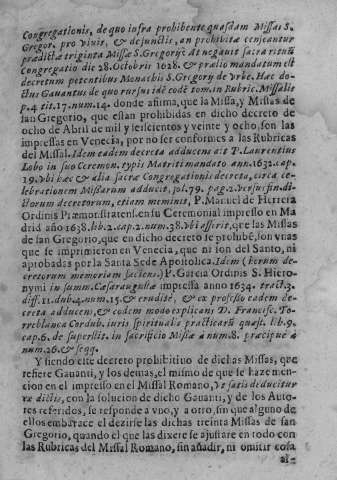 Congregationis, de quo infra prohibente quasdam Missas S.
Gregor. pro viuis, & defunctis, an prohibitæ censeantur
prædictæ triginta Missæ S. Gregorij: At negauit sacra rituũ
Congregatio die 28. Octobris 1628. & prælo mandatum est
decretum petentibus Monachis S. Gregorij de Vrbe. Hæc do-
ctus Gauantus de quo rursus idẽ codẽ tom. in Rubric. Missalis
p.4 tit.17. num.14. donde afirma, que la Missa, y Missas de
san Gregorio, que estàn prohibidas en dicho decreto de
ocho de Abril de mil y seiscientos y veinte y ocho, son las
impressas en Venecia, por no ser conformes a las Rubricas
del Missal. Idem tadem decreta adducens ait P. Laurentius
Lobo in suo Ceremon. typis Matriti mandato ann. 1632. cap.
19. vbi hæc & alia sacræ Congregationis decreta, circa ce-
lebrationem Missarum adducit, fol.79. pag.2. versus fin. di-
ctorum decretorum, etiam meminit, P. Manuel de Herrera
Ordinis Præmonstratens. en su Ceremonial impresso en Ma
drid año 1638. lib.2. cap.2. num.38. vbi asserit, que las Missas
de san Gregorio, que en dicho decreto se prohibẽ, son vnas
que se imprimieron en Venecia, que ni son del Santo, ni
aprobadas por la Santa Sede Apostolica. Idem (horum de-
cretorum memoriam faciens) P. Garcia Ordinis S. Hiero-
nymi in summ. Cæsaraugustæ impressa anno 1634. tract.3.
diff.11. dub.4. num.15. & eruditè, & ex professo eadem de-
creta adducens, & eodem modo explicans D. Francisc. To-
rreblanca Cordub. iuris spiritualis practicarũ quæst. lib.9.
cap.6. de superstit. in sacrificio Missæ à num.8. præcipuè à
num.26. & seqq.
Y siendo este decreto prohibitiuo de dichas Missas, que
refiere Gauanti, y los demas, el mismo de que se haze men-
cion en el impresso en el Missal Romano, Vt satis deducitur
ex dictis, con la solucion de dicho Gauanti, y de los Auto-
res referidos, se responde a vno, y a otro, sin que alguno de
ellos embarace el dezirse las dichas treinta Missas de san
Gregorio, quando el que las dixere se ajustare en todo con
las Rubricas del Missal Romano, sin añadir, ni omitir cosa
al-